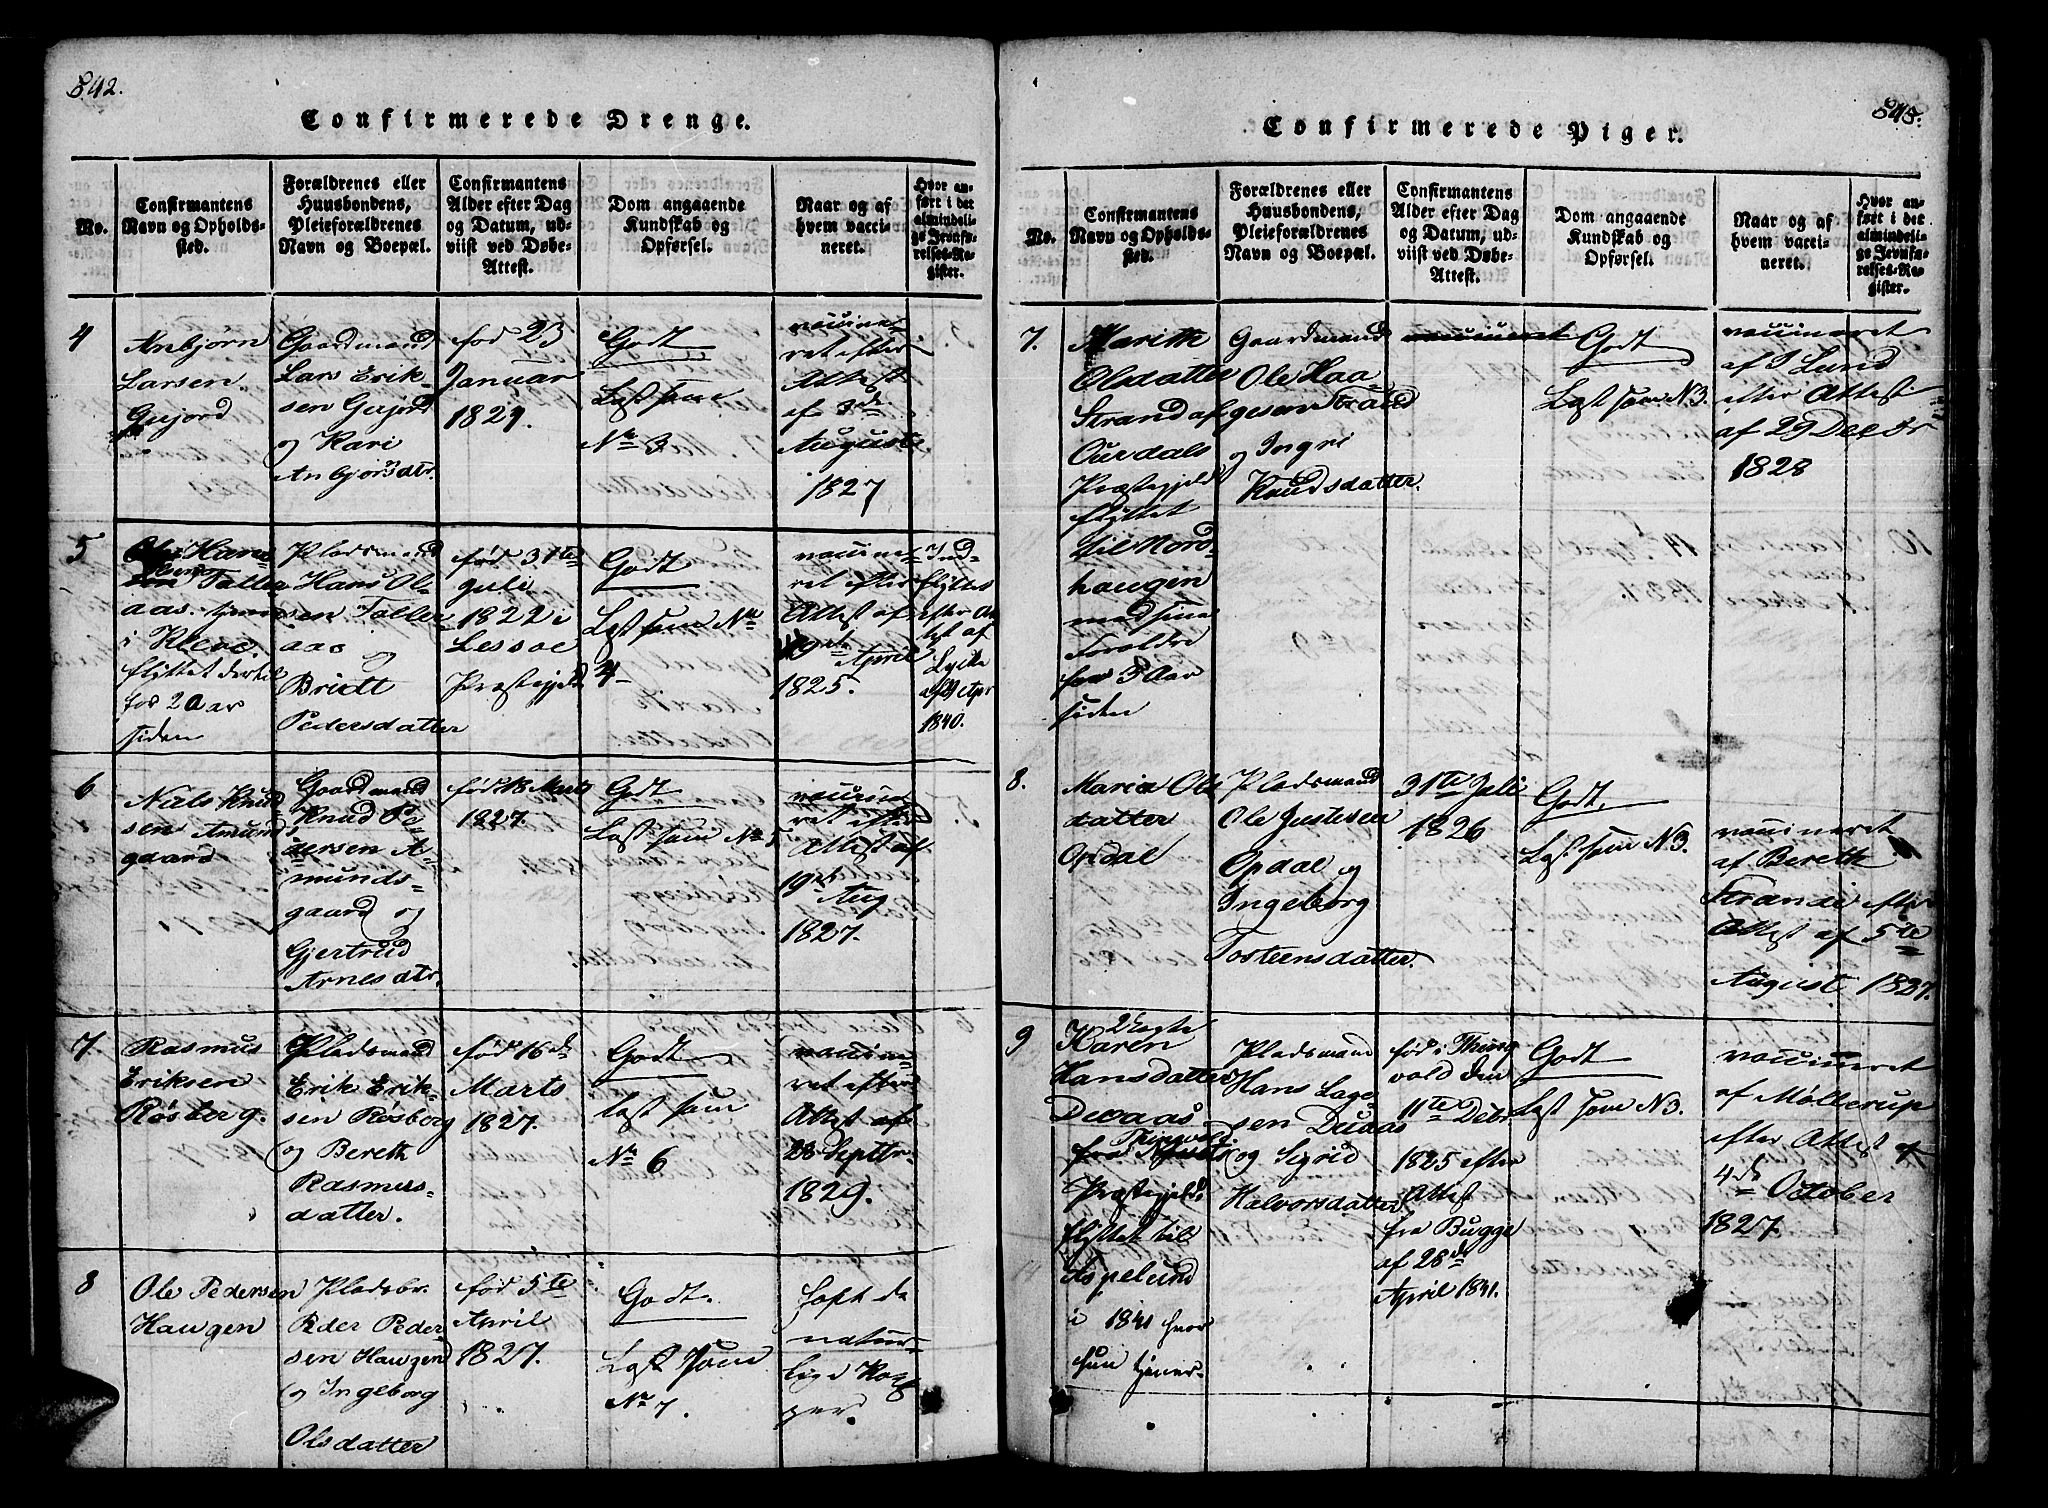 842.
Confirmerede Drenge.
No.
Confirmantens
Navn og Opholds-
sted.
Forældrenes eller
Huusbondens,
Pleieforældrenes
Navn og Boepæl.
Confirmantens
Alder efter Dag
og Datum, ud-
viist ved Døbe-
Attest.
Dom angaaende
Kundskab og
Opførsel.
Naar og af
hvem vacci-
neret.
Hvor an-
ført i det
almindeli-
ge Jevnfø-
relses-Re-
gister.
4
Anbjørn
Larsen
Gujord
Gaardmand
Lars Erik-
sen Gujord
og Kari
Anbjørsdtr.
fød 23
Januar
1827.
Godt
Læst som
No 3
vaccine-
ret efter
Attest
af 3de
Auguste
1827
5
Ole Hans
Taller
aas. tjener
i Kleve.
flyttet dertil
for 2 Aar
siden
Pladsmand
Hans Ol-
sen Taller-
aas og
Bridt
Pedersdatter
fød 31te
Juli
1822 i
Lessøe
Præstegjeld
Godt
Læst som No
4
vaccine-
ret efter
Attest af
April
1825.
Ind-
flyttet
efter At-
test af
Lycke
1840.
6
Niels Knud
sen Amund
gaard
Gaardmand
Knud Pe-
dersen A-
munds-
gaard og
Gjertrud
Arnesdtr.
fød 18 Marts
1827.
Godt
Læst som No 5
vaccine-
ret efter
Attest af
19de
Aug
1827.
7
Rasmus
Eriksen
Røsberg.
Pladsmand
Erik Erik-
sen Røsberg
og Bereth
Rasmus-
datter.
fød 16de
Marts
1827.
Godt
læst som
No 6
vaccine-
ret efter
Attest af
28 Septbr.
1829.
8
Ole Pedersen
Haugen
Pladsbr.
Peder Peder-
sen Haugen
og Ingeborg
Olsdatter
fød 5te
April
1827.
Godt.
Læst som
No 7.
havt de
natur-
lige Kop-
per.
843.
Confirmerede Piger.
No.
Confirmantens
Navn og Opholds-
sted.
Forældrenes eller
Huusbondens,
Pleieforældrenes
Navn og Boepæl.
Confirmantens
Alder efter Dag
og Datum, ud-
viist ved Døbe-
Attest.
Dom angaaende
Kundskab og
Opførsel.
Naar og af
hvem vacci-
neret.
Hvor an-
ført i det
almindeli-
ge Jevnfø-
relses-Re-
gister.
7.
Marith
Olsdatter
Strand af
Ourdals
Præstegjeld
flyttet
til Nord-
haugen
med sine
Forældre
for 3 Aar
siden
Gaardmand
Ole Haa-
gesen Strand
og Ingri
Knudsdatter.
vaccineret
Godt
Læst som N 3.
vaccineret
af J Lund
efter Attest
af 29 Decbr
1828
8.
Maria Ols
datter
Opdal
Pladsmand
Ole Justesen
Opdal og
Ingeborg
Tosteensdatter.
31te Juli
1826
Godt.
Læst som N 3.
vaccineret
af Bereth
Strande efter
Attest af 5te
August 1827.
9
Karen
Hansdatter
Devaas
fra
Præstegjeld,
flyttet til
Aspelund
i 1841 hvor
hun tjener.
Pladsmand
Hans Lage-
sen Duaas
og Sigrid
Halvorsdatter
fød i Thing-
vold den
11te Decbr
1825 efter
Attest
fra Bugge
af 28de
April 1841.
Godt
Læst som N 3.
vaccineret
af Møllerup
efter Attest af
4de October
1827.